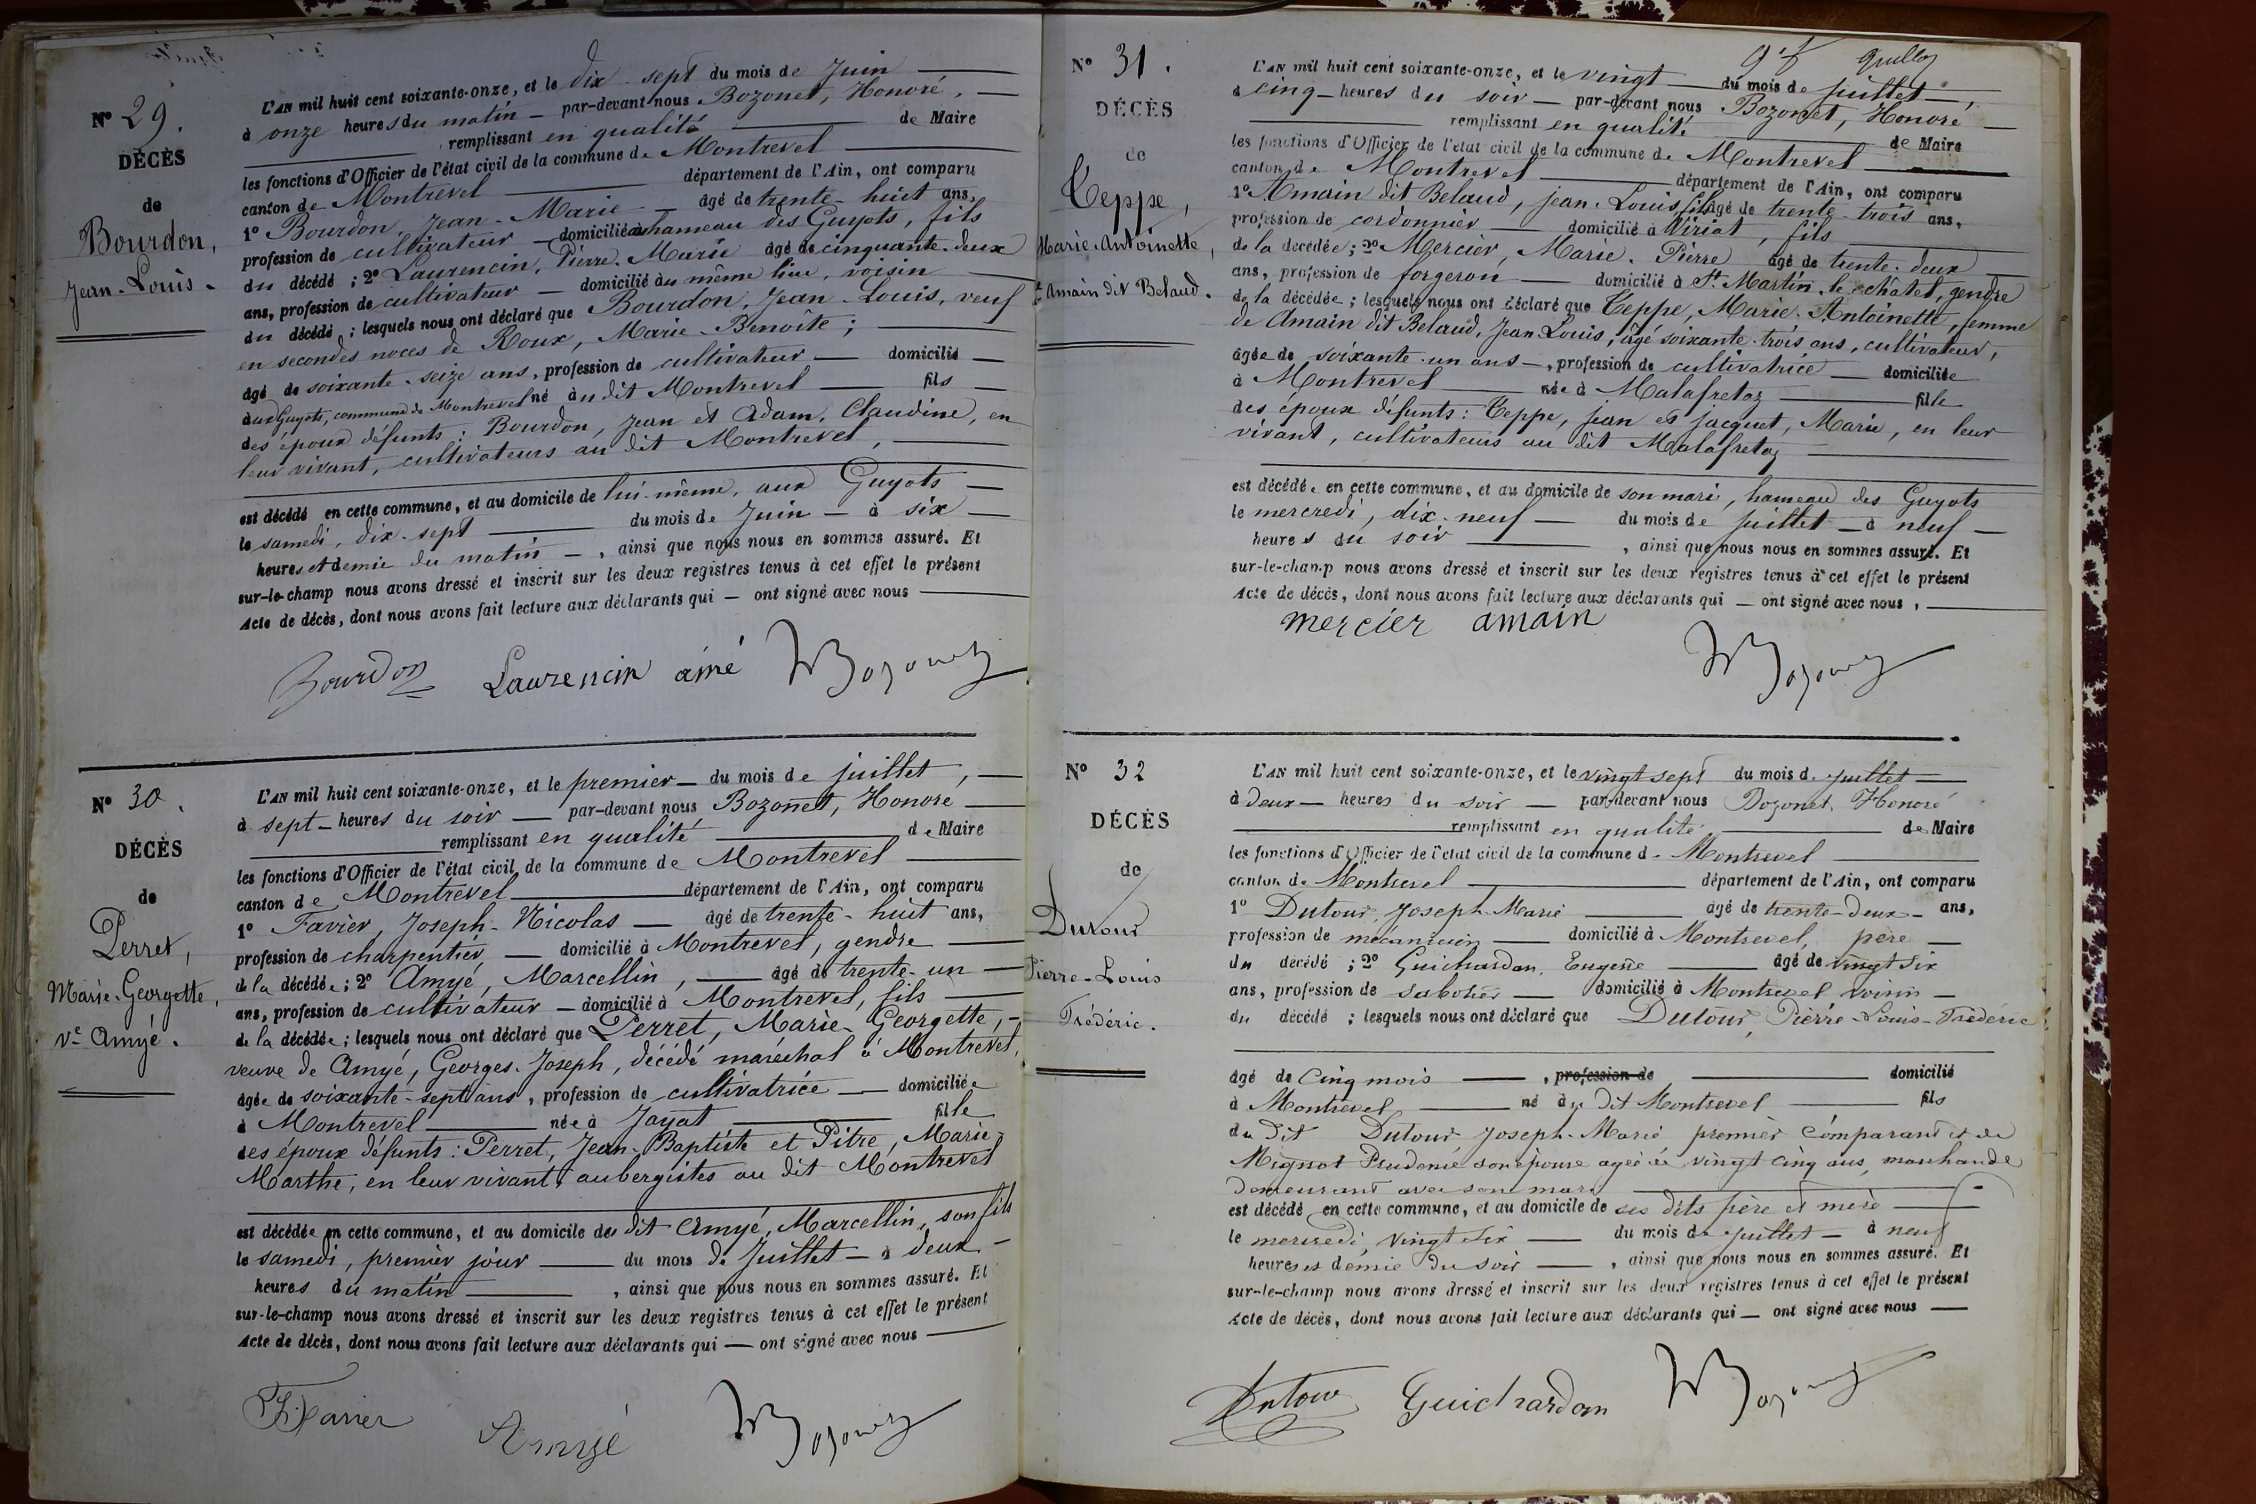 Nº 29.
DÉCÈS
de
Bourdon,
Jean-Louis.
L'AN mil huit cent soixante-onze, et le dix-sept du mois de Juin
à onze heures du matin par-devant nous Bozonet, Honoré,
remplissant en qualité de Maire
les fonctions d'Officier de l'état civil de la commune de Montrevel
canton de Montrevel département de l'Ain, ont comparu
1º Bourdon, Jean-Marie âgé de trente-huit ans,
profession de cultivateur domicilié au hameau des Guyots, fils
du décédé ; 2º Laurencin, Pierre-Marie âgé de cinquante-deux
ans, profession de cultivateur domicilié au même lieu, voisin
du décédé ; lesquels nous ont déclaré que Bourdon, Jean-Louis, veuf
en secondes noces de Roux, Marie-Benoîte ;
âgé de soixante-seize ans, profession de cultivateur domicilié
aux Guyots, commune de Montrevel né au dit Montrevel fils
des époux défunts : Bourdon, Jean et Adam, Claudine, en
leur vivant, cultivateurs au dit Montrevel,
est décédé en cette commune, et au domicile de lui-même, aux Guyots
le samedi, dix-sept du mois de Juin à six
heures et demie du matin, ainsi que nous nous en sommes assuré. Et
sur-le-champ nous avons dressé et inscrit sur les deux registres tenus à cet effet le présent
Acte de décès, dont nous avons fait lecture aux déclarants qui ont signé avec nous
Bourdon Laurencin ainé Bozonet
Nº 30.
DÉCÈS
de
Perret,
Marie-Georgette,
Vᵉ Amyé.
L'AN mil huit cent soixante-onze, et le premier du mois de juillet,
à sept heures du soir par-devant nous Bozonet, Honoré
remplissant en qualité de Maire
les fonctions d'Officier de l'état civil de la commune de Montrevel
canton de Montrevel département de l'Ain, ont comparu
1º Favier, Joseph-Nicolas âgé de trente-huit ans,
profession de charpentier domicilié à Montrevel, gendre
de la décédée ; 2º Amyé, Marcellin, âgé de trente-un
ans, profession de cultivateur domicilié à Montrevel, fils
de la décédée ; lesquels nous ont déclaré que Perret, Marie-Georgette,
veuve de Amyé, Georges-Joseph, décédé maréchal à Montrevel,
âgée de soixante-sept ans, profession de cultivatrice domiciliée
à Montrevel née à Jayat fille
des époux défunts : Perret, Jean-Baptiste et Pitre, Marie-
Marthe, en leur vivant, aubergistes au dit Montrevel
est décédée en cette commune, et au domicile de dit Amyé, Marcellin, son fils
le samedi, premier jour du mois de Juillet à deux
heures du matin, ainsi que nous nous en sommes assuré. Et
sur-le-champ nous avons dressé et inscrit sur les deux registres tenus à cet effet le présent
Acte de décès, dont nous avons fait lecture aux déclarants qui ont signé avec nous
Favier Amyé Bozonet
Nº 31.
DÉCÈS
de
Teppe,
Marie-Antoinette,
fᵉ Amain dit Belaud.
L'AN mil huit cent soixante-onze, et le vingt du mois de juillet,
à cinq heures du soir par-devant nous Bozonet, Honoré
remplissant en qualité de Maire
les fonctions d'Officier de l'état civil de la commune de Montrevel
canton de Montrevel département de l'Ain, ont comparu
1º Amain dit Belaud, Jean-Louis fils âgé de trente-trois ans,
profession de cordonnier domicilié à Viriat, fils
de la décédée ; 2º Mercier, Marie-Pierre âgé de trente-deux
ans, profession de forgeron domicilié à St Martin-le-châtel, gendre
de la décédée ; lesquels nous ont déclaré que Teppe, Marie-Antoinette, femme
de Amain dit Belaud, Jean-Louis, âgé soixante-trois ans, cultivateur,
âgée de soixante-un ans, profession de cultivatrice domiciliée
à Montrevel née à Malafretaz fille
des époux défunts : Teppe, Jean et Jacquet, Marie, en leur
vivant, cultivateurs au dit Malafretaz
est décédée en cette commune, et au domicile de son mari, hameau des Guyots
le mercredi, dix-neuf du mois de juillet à neuf
heures du soir, ainsi que nous nous en sommes assuré. Et
sur-le-champ nous avons dressé et inscrit sur les deux registres tenus à cet effet le présent
Acte de décès, dont nous avons fait lecture aux déclarants qui ont signé avec nous,
mercier amain
Bozonet
Nº 32
DÉCÈS
de
Dutour
Pierre-Louis
Frédéric.
L'AN mil huit cent soixante-onze, et le vingt sept du mois de Juillet
à deux heures du soir par-devant nous Bozonet, Honoré
remplissant en qualité de Maire
les fonctions d'Officier de l'état civil de la commune de Montrevel
canton de Montrevel département de l'Ain, ont comparu
1º Dutour, Joseph-Marie âgé de trente-deux ans,
profession de mécanicien domicilié à Montrevel, père
du décédé ; 2º Guichardan, Eugène âgé de vingt six
ans, profession de sabotier domicilié à Montrevel voisin
du décédé ; lesquels nous ont déclaré que Dutour, Pierre-Louis-Frédéric
âgé de Cinq mois, profession de domicilié
à Montrevel né au dit Montrevel fils
du dit Dutour Joseph-Marie premier Comparant et de
Mignot Prudence son épouse agée de vingt cinq ans, marchande
demeurant avec son mari
est décédé en cette commune, et au domicile de ses dits père et mère
le mercredi, vingt six du mois de Juillet à neuf
heures et demie du soir, ainsi que nous nous en sommes assuré. Et
sur-le-champ nous avons dressé et inscrit sur les deux registres tenus à cet effet le présent
Acte de décès, dont nous avons fait lecture aux déclarants qui ont signé avec nous
Dutour Guichardan Bozonet